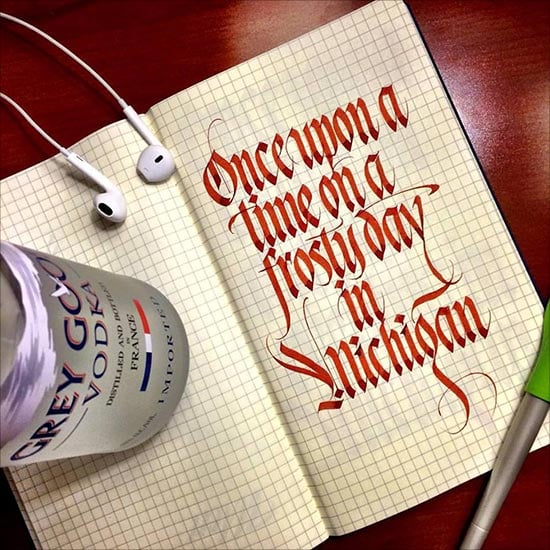 Once upon a
time on a
frosty day
in
Michigan
GREY GOO
VODKA
DISTILLED AND BOTTLED
IN
FRANCE
IMPORTED